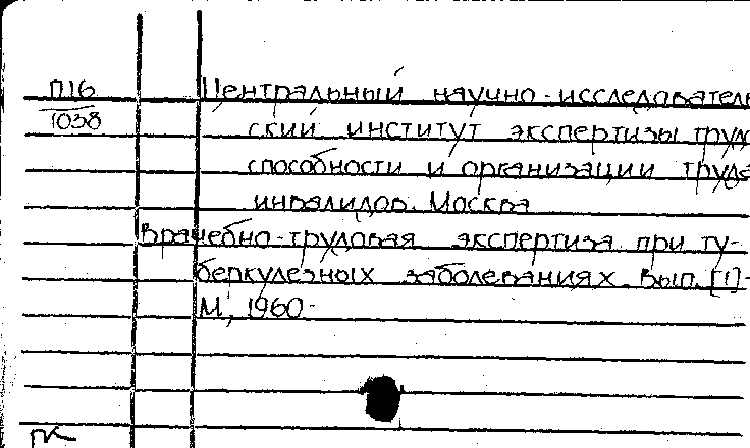 П16 Центральный научно-исследователь
1038 ский институт экспертизы трудо
способности и организации труда
инвалидов. Москва
Врачебно-трудовая экспертиза при ту-
беркулезных заболеваниях. Вып. [1]-
М, 1960-
ПК